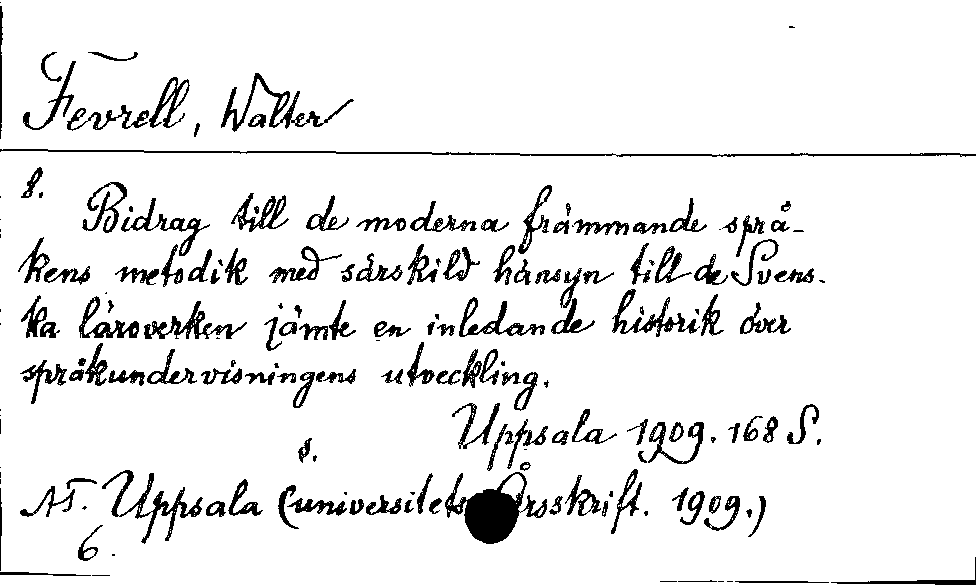 Fevrell, Walter
8.
Bidrag till de moderna främmande språ-
kens metodik med särskild hänsyn till de Svens-
ka läroverken jämte en inledande historik över
språkundervisningens utveckling.
Uppsala 1909. 168 S.
s.
AT. Uppsala (universitets Årsskrift. 1909.)
6.